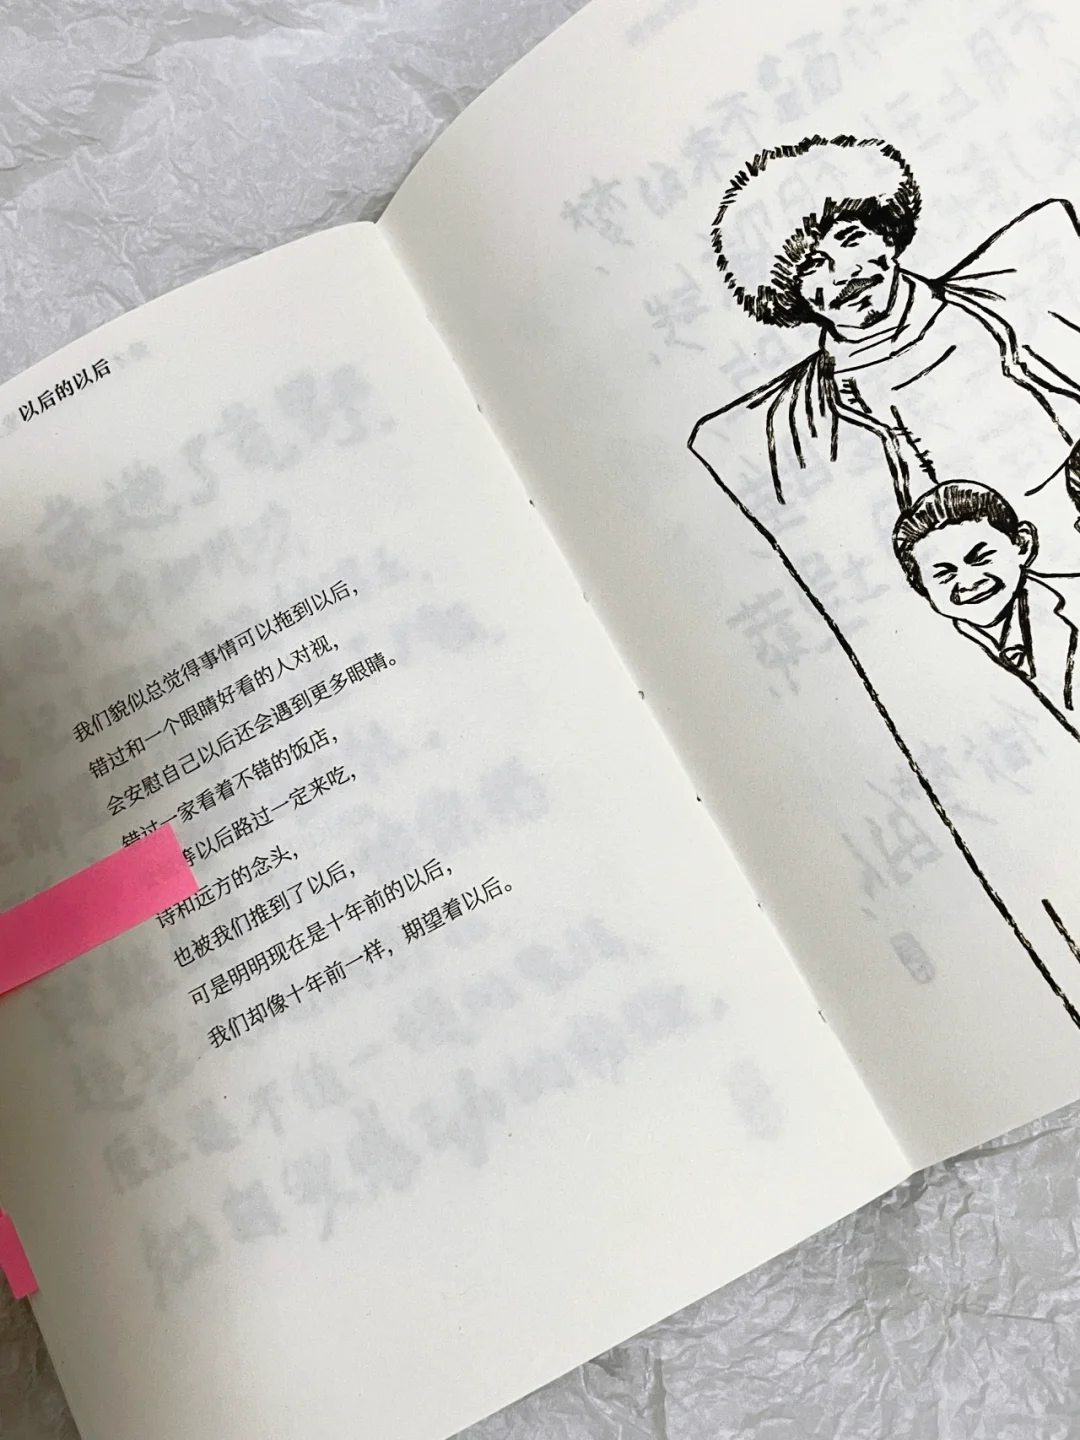 以后的以后
我们貌似总觉得事情可以拖到以后，
错过和一个眼睛好看的人对视，
会安慰自己以后还会遇到更多眼睛。
错过一家看着不错的饭店，
等以后路过一定来吃，
诗和远方的念头，
也被我们推到了以后，
可是明明现在是十年前的以后，
我们却像十年前一样，期望着以后。